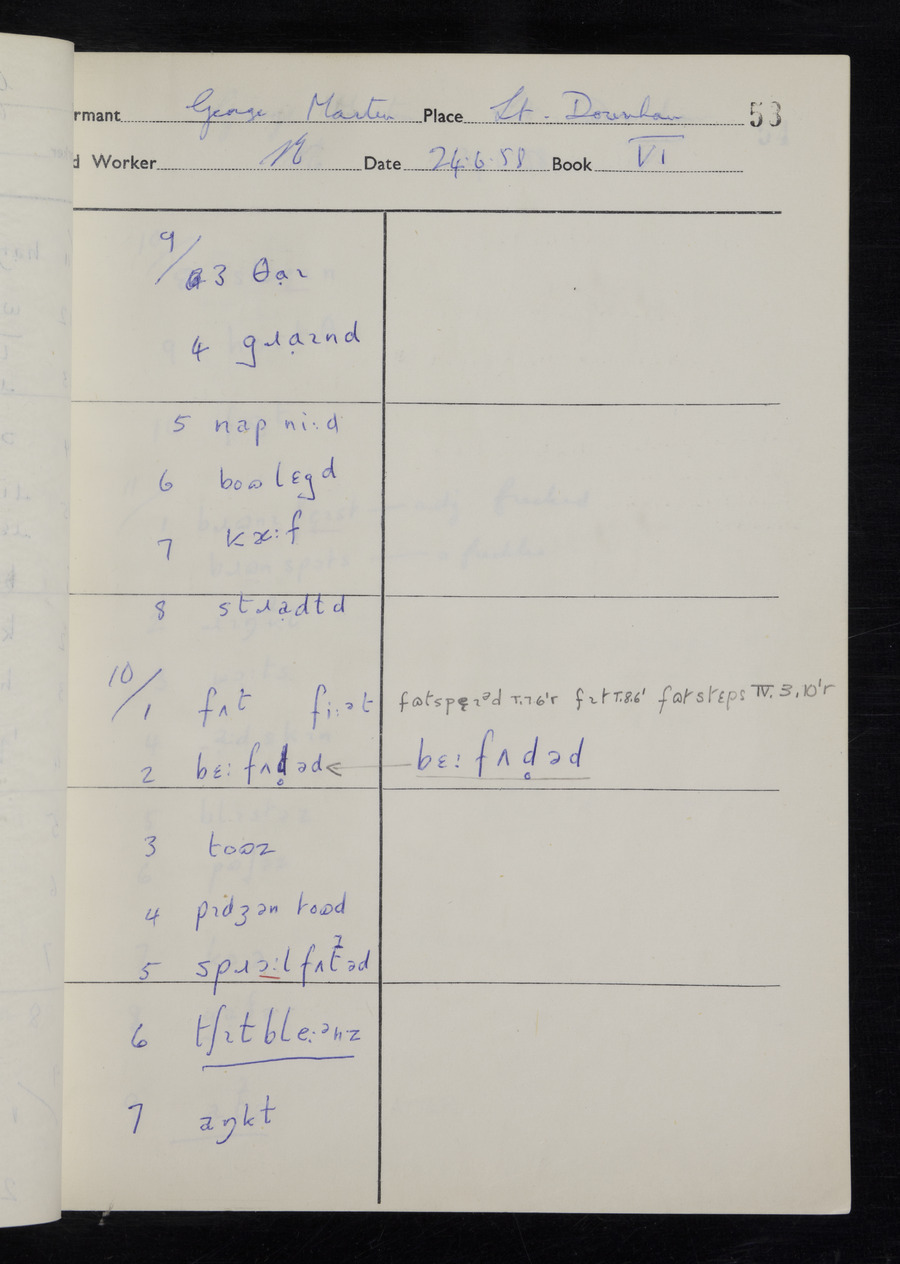 rmant George Martin Place Lt. Downham 53
d Worker Date 24.6.58 Book VI
9/ 3 θạɪ
4 gɹạɪnd
5 nap ni:d
6 boɷlɛgd
7 kæ:f
8 stɹạdtd
10/ 1 fʌt fi:ət fɷtspɛɪᵊd fɪt fɷtstɛps IV. 3, 10'r
2 bɛ: fʌd̥əd bɛ: fʌd̥əd
3 toɷz
4 pɪdʒən toɷd
5 spɹɔ:l fʌtəd
6 tʃɪt ble:ᵊnz
7 aŋkt